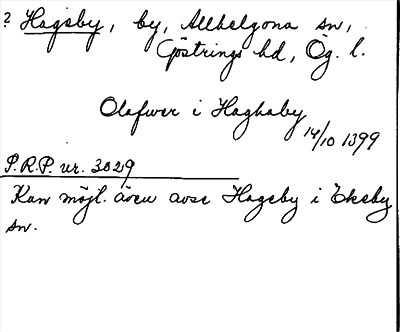 ? Hageby, by, Allhelgona sn,
Göstrings hd, Ög. l.
Olafwer i Haghaby
14/10 1399
P.R.P. nr. 3029
Kan möjl. även avse Hageby i Ekeby
sn.